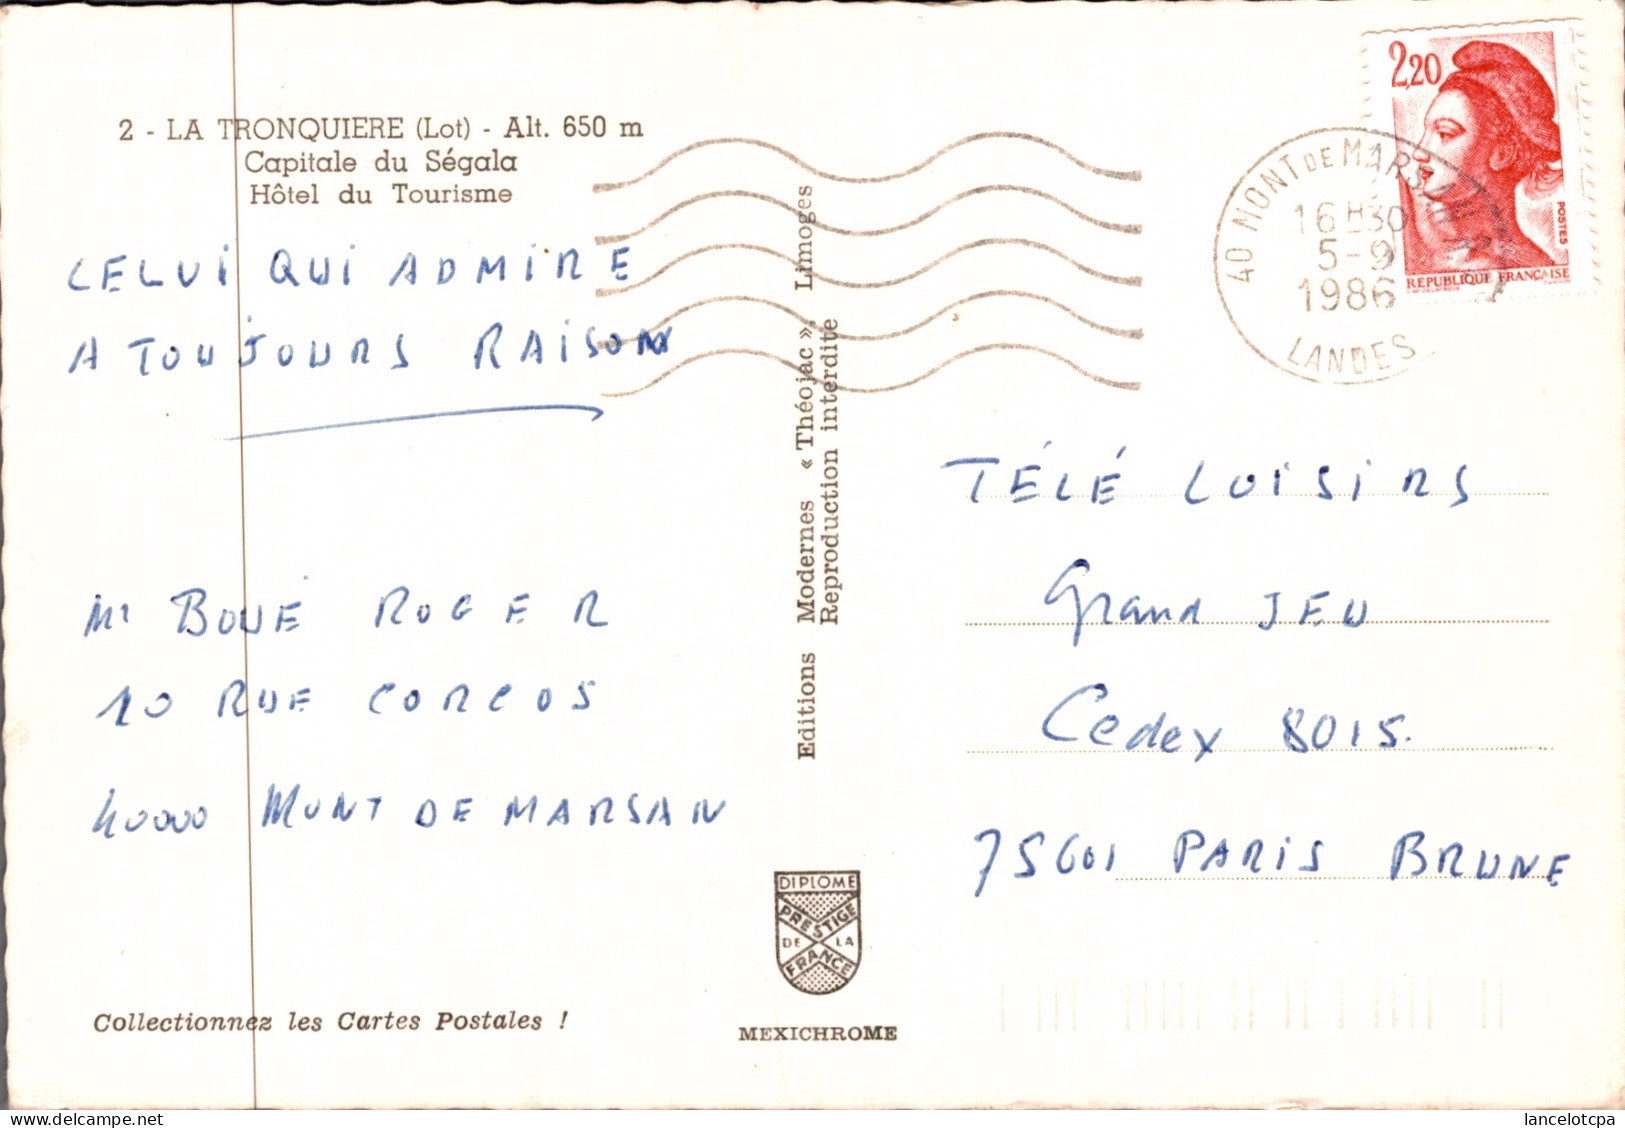 2 - LA TRONQUIERE (Lot) - Alt. 650 m
Capitale du Ségala
Hôtel du Tourisme
CELUI QUI ADMIRE
A TOUJOURS RAISON
Mr BOUE ROGER
10 RUE CORCOS
40000 MONT DE MARSAN
Collectionnez les Cartes Postales !
Editions Modernes « Théojac », Limoges
Reproduction interdite
DIPLOME
PRESTIGE
DE LA
FRANCE
MEXICHROME
2,20
POSTES
REPUBLIQUE FRANÇAISE
40 MONT DE MARSAN
16 H 30
5-9
1986
LANDES
TÉLÉ LOISIRS
Grand JEU
Cedex 8015.
75601 PARIS BRUNE
delcampe.net
lancelotcpa